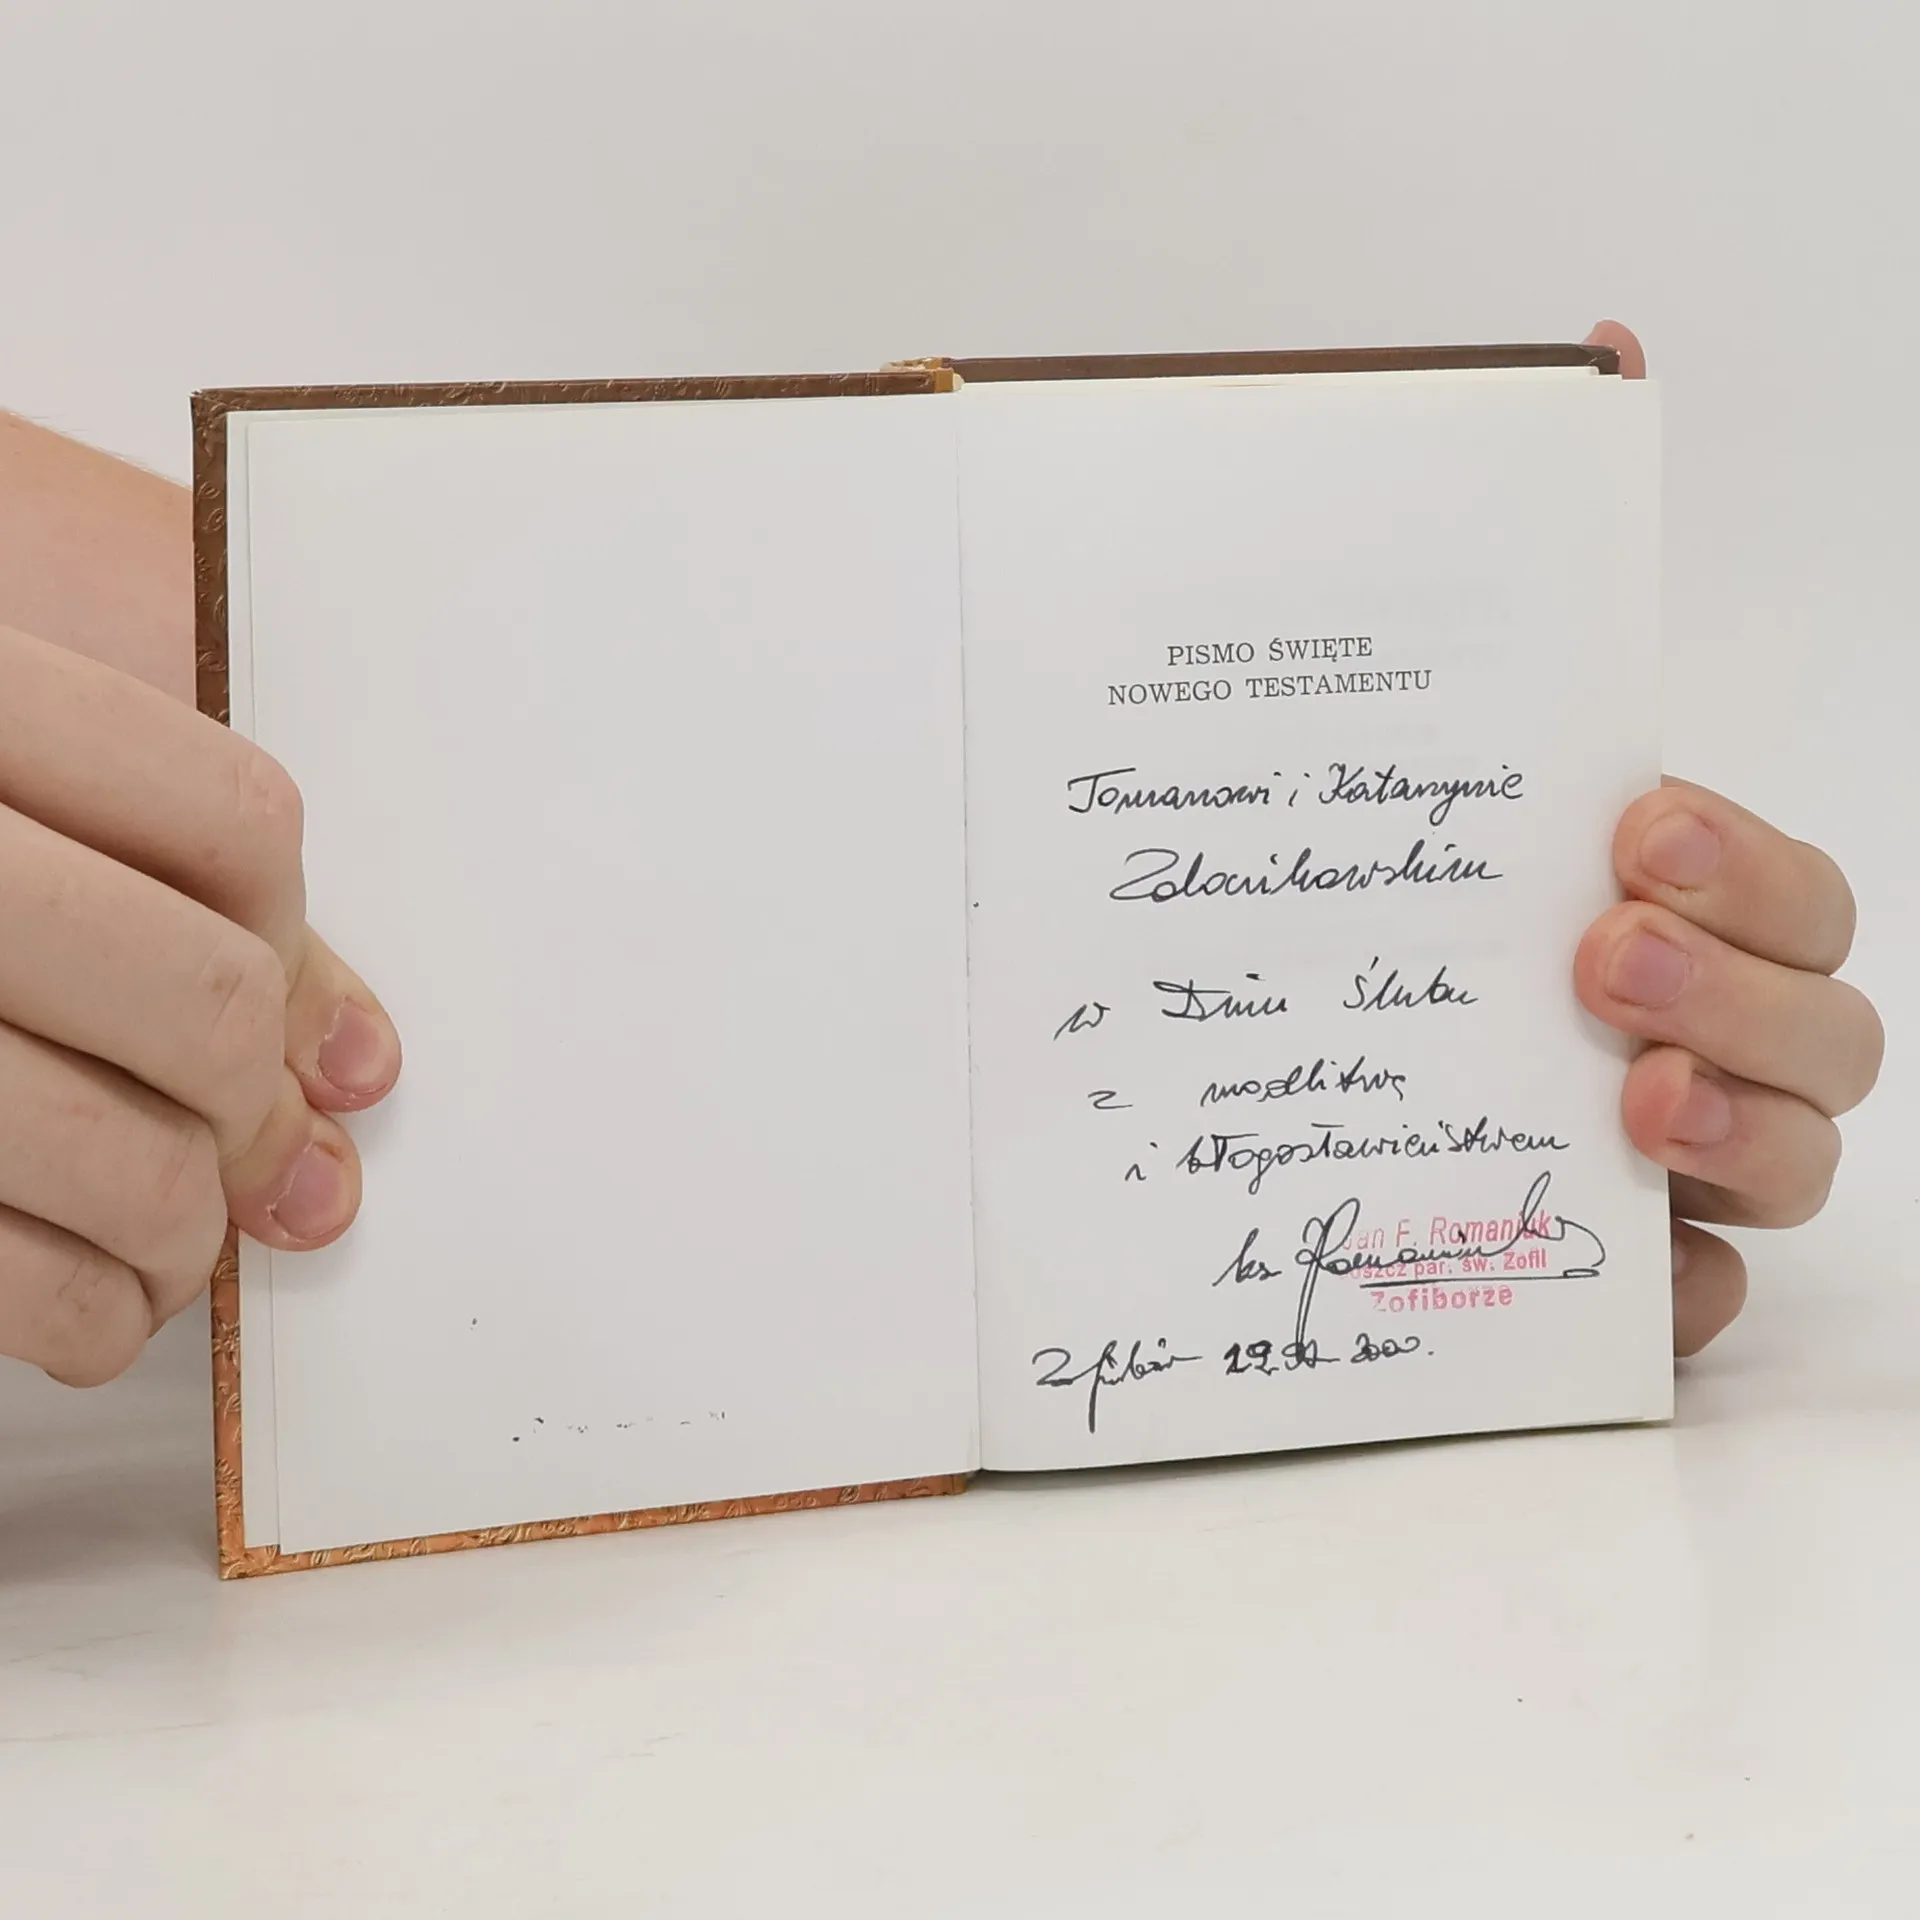 PISMO ŚWIĘTE
NOWEGO TESTAMENTU
Tomanowi i Katarzynie
w Dniu Ślubu
z modlitwą
i błogosławieństwem
ks Romaniuk
Jan F. Romaniuk
par. św. Zofii
Zofiborze
2000.